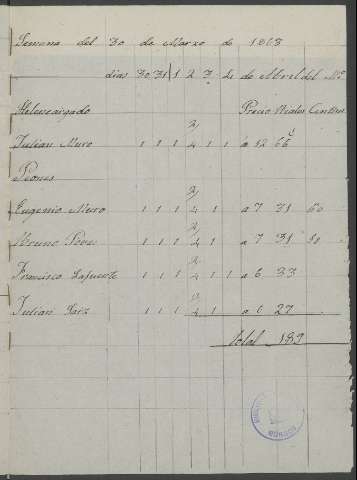 Semana del 30 de Marzo de 1868
dias 30 31 1 2 3 4 de Abril del Mº
El encargado Precio Reales Cents
Julian Muro 1 1 1 2/4 1 1 á 12 66
Peones
Eugenio Muro 1 1 1 2/4 1 a 7 31 50
Bruno 1 1 1 2/4 1 a 7 31 50
Francisco Lafuente 1 1 1 2/4 1 1 a 6 33
Julian Saez 1 1 1 2/4 1 a 6 27
total 189